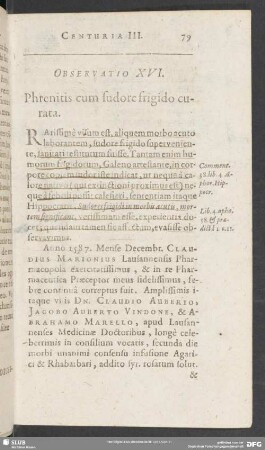 CENTURIA III. 79
OBSERVATIO XVI.
Phrenitis cum sudore frigido cu-
rata.
RArissimè visum est, aliquem morbo acuto
laborantem, sudore frigido superveniente,
sanitati restitutum fuisse. Tantam enim hu-
morum frigidorum, Galeno attestante, in cor-
pore copiam
neque à febri possit calefieri, sententiam itaque
Hippocratis, Sudores frigidos morbo acuto, mor-
tem significare, verissimam esse, experientia do-
cet: quosdam tamen
servavimus.
Comment.
38. lib. 4. A-
phor. Hip-
pocr.
Lib. 4. apho.
38. & præ-
dict. l. 1. 27.
Anno 1587. Mense Decembr. CLAU-
DIUS MARIONIUS Lausanensis Phar-
macopola exercitatissimus, & in re Phar-
maceutica Præceptor meus fidelissimus, fe-
bre continuâ correptus fuit. Amplissimis i-
taque viis DN. CLAUDIO AUBERIO,
JACOBO AUBERTO VINDONE, & A-
BRAHAMO MARELLO, apud Lausan-
nenses Medicinæ Doctoribus, longè cele-
berrimis in consilium vocatis, secunda die
morbi unanimi consensu infusione Agari-
ci & Rhabarbari, addito syr. rosarum solut.
&
SLUB
DFG